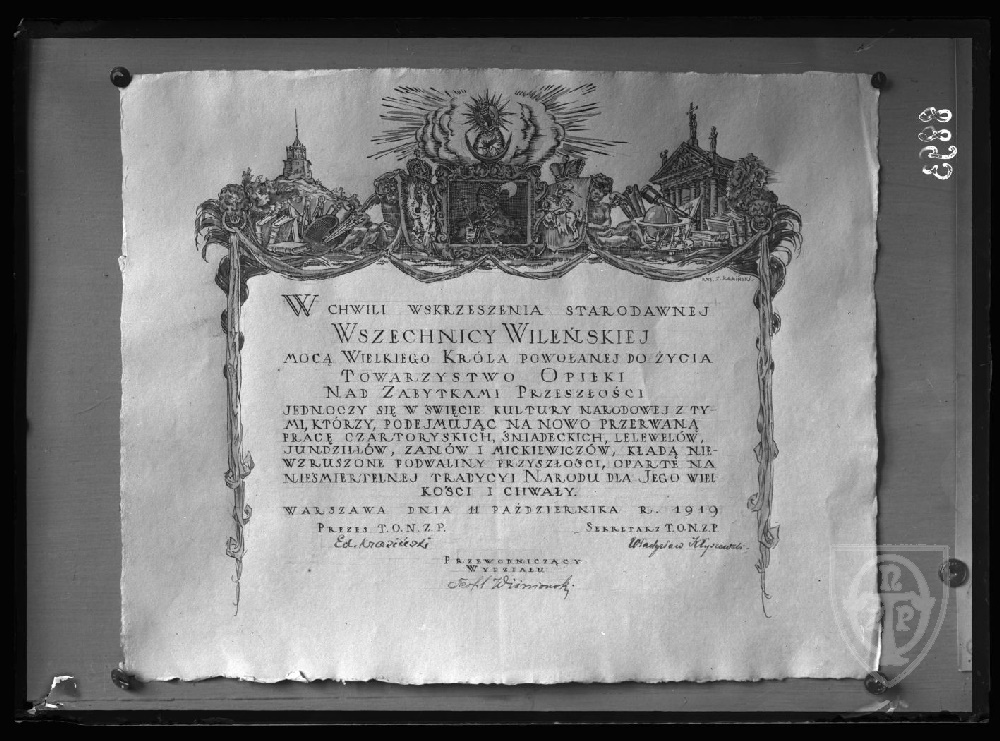 W CHWILI WSKRZESZENIA STARODAWNEJ
WSZECHNICY WILEŃSKIEJ
MOCĄ WIELKIEGO KRÓLA POWOŁANEJ DO ŻYCIA
TOWARZYSTWO OPIEKI
NAD ZABYTKAMI PRZESZŁOŚCI
JEDNOCZY SIĘ W ŚWIĘCIE KULTURY NARODOWEJ Z TY-
MI, KTÓRZY, PODEJMUJĄC NA NOWO PRZERWANĄ
PRACĘ CZARTORYSKICH, ŚNIADECKICH, LELEWELÓW,
JUNDZIŁŁÓW, ZANÓW I MICKIEWICZÓW, KŁADĄ NIE-
WZRUSZONE PODWALINY PRZYSZŁOŚCI, OPARTE NA
NIEŚMIERTELNEJ TRADYCYI NARODU DLA JEGO WIEL
KOŚCI I CHWAŁY.
WARSZAWA DNIA 11 PAŹDZIERNIKA R. 1919
PREZES T.O.N.Z.P. SEKRETARZ T.O.N.Z.P.
Ed. Krasiński Władysław Kłyszewski
PRZEWODNICZĄCY
WYDZIAŁU
Teofil Wiśniowski
8899